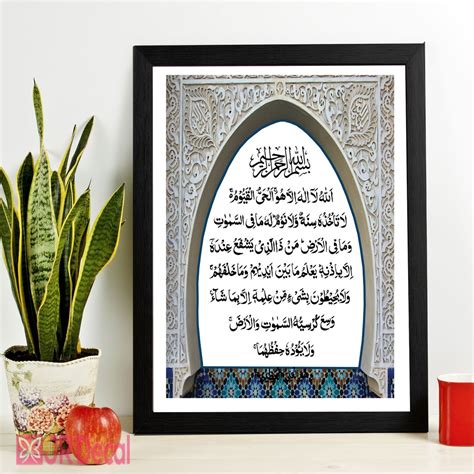 بِسْمِ اللهِ الرَّحْمٰنِ الرَّحِيْمِ
اَللهُ لَا اِلٰهَ اِلَّا هُوَ الْحَيُّ الْقَيُّوْمُ
لَا تَاْخُذُهٗ سِنَةٌ وَّلَا نَوْمٌ لَهٗ مَا فِی السَّمٰوٰتِ
وَمَا فِی الْاَرْضِ مَنْ ذَا الَّذِیْ يَشْفَعُ عِنْدَهٗ
اِلَّا بِاِذْنِهٖ يَعْلَمُ مَا بَيْنَ اَيْدِيْهِمْ وَمَا خَلْفَهُمْ
وَلَا يُحِيْطُوْنَ بِشَیْءٍ مِّنْ عِلْمِهٖ اِلَّا بِمَا شَآءَ
وَسِعَ كُرْسِيُّهُ السَّمٰوٰتِ وَالْاَرْضَ
وَلَا يَؤُدُهٗ حِفْظُهُمَا
Decal